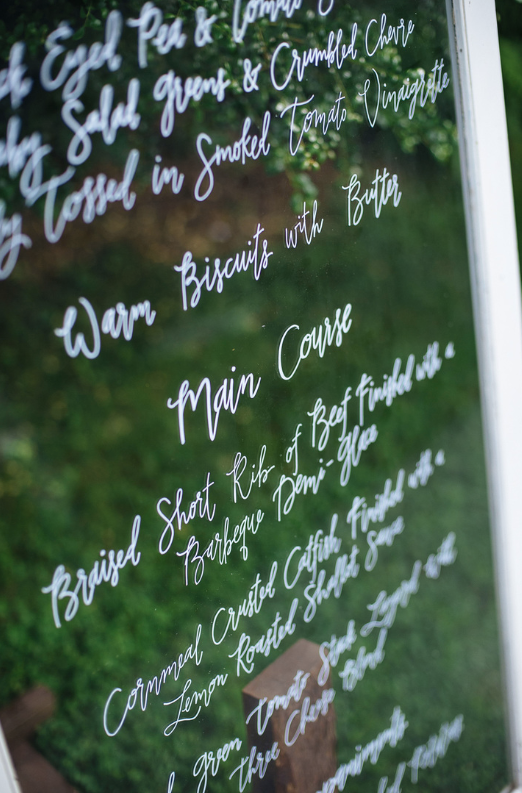 Eyed Pea & Tomato
Baby Salad Greens & Crumbled Chevre
Tossed in Smoked Tomato Vinaigrette
Warm Biscuits with Butter
Main Course
Braised Short Rib of Beef Finished with a
Barbeque Demi-Glaze
Cornmeal Crusted Catfish Finished with a
Lemon Roasted Shallot Sauce
green tomato Stack Layered with
three Cheese